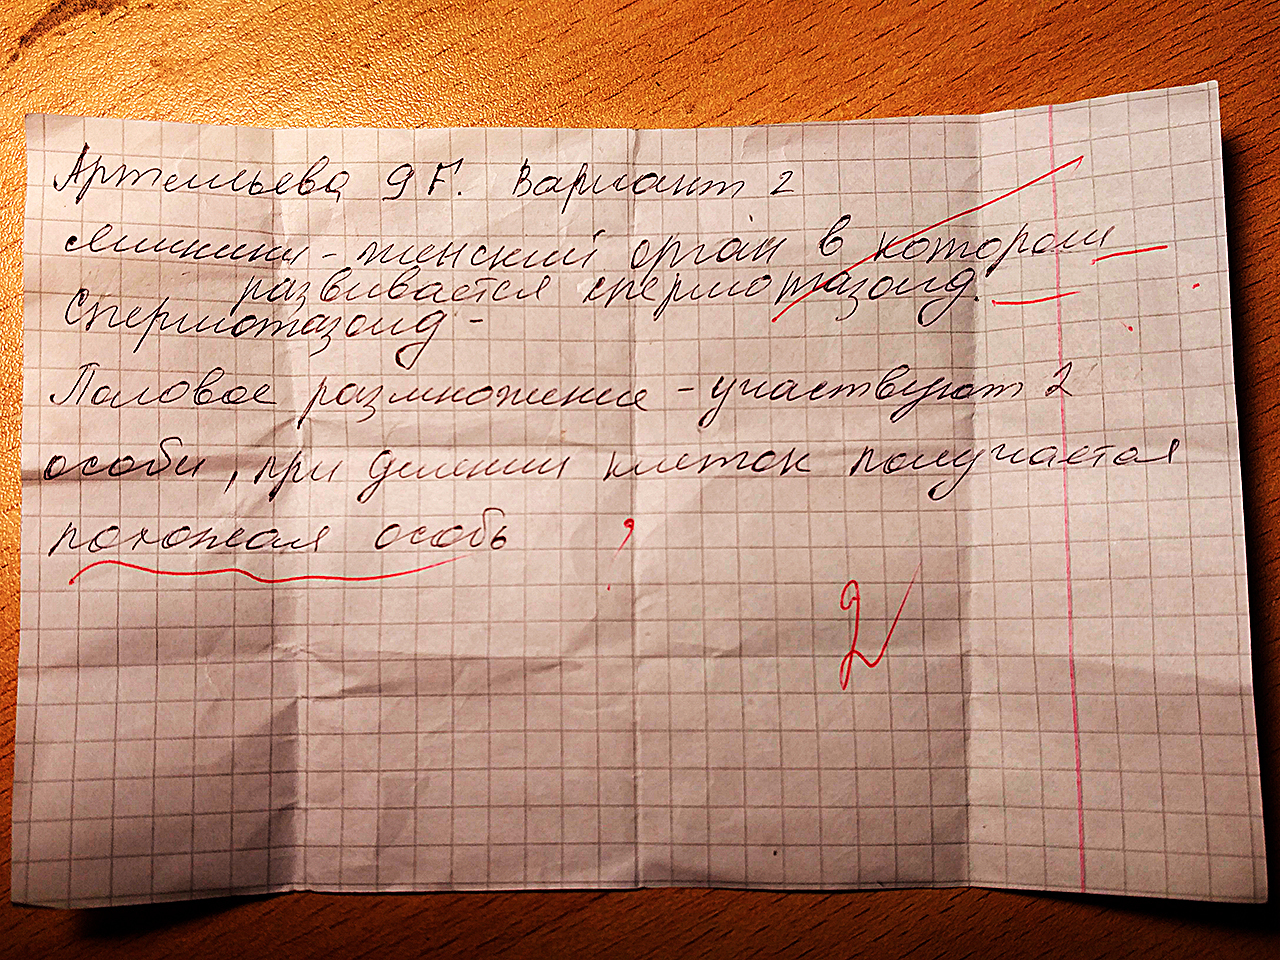 Артемьева 9 Г. Вариант 2
Яичники - женский орган в котором
развивается спермотазоид.
Спермотазоид -
Половое размножение - участвуют 2
особи, при делении клеток получается
похожая особь
2